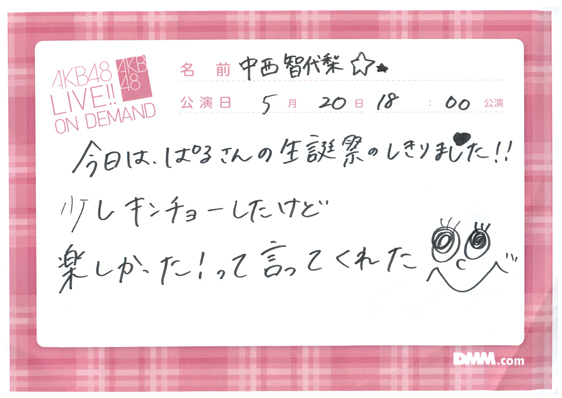 AKB48
LIVE!!
ON DEMAND
AKB
48
名前 中西智代梨
公演日 5月20日 18:00公演
今日は、ぱるさんの生誕祭のしきりました!!
少しキンチョーしたけど
楽しかった!って言ってくれた
DMM.com